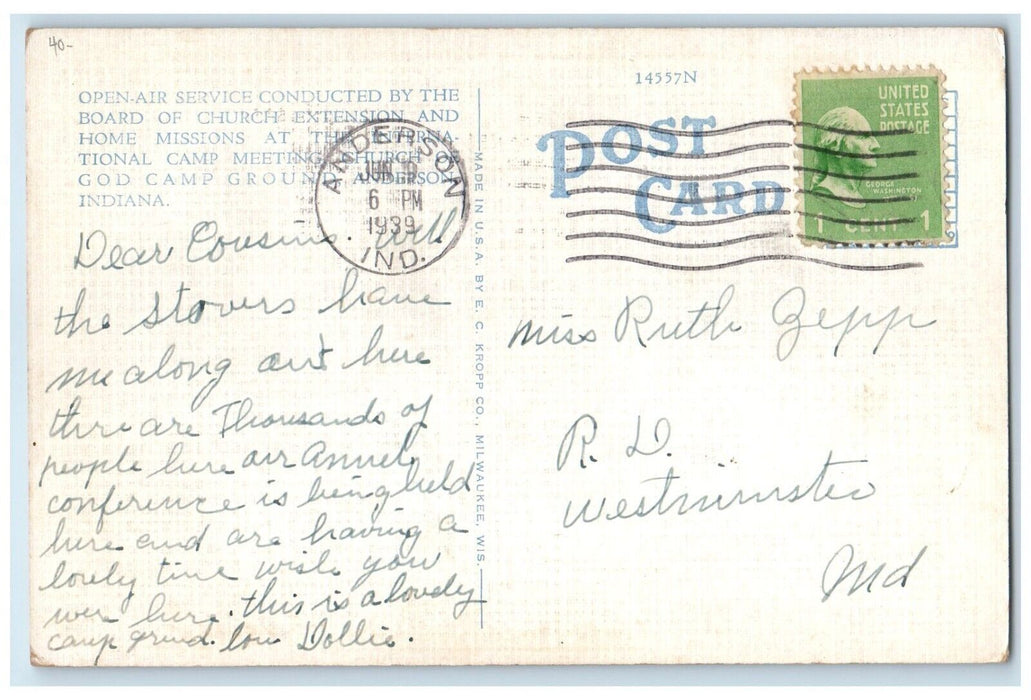 40-
14557N
OPEN-AIR SERVICE CONDUCTED BY THE
BOARD OF CHURCH EXTENSION AND
HOME MISSIONS AT THE INTERNA-
TIONAL CAMP MEETING, CHURCH OF
GOD CAMP GROUND, ANDERSON,
INDIANA.
ANDERSON
JUN
6 PM
1939
IND.
POST
CARD
UNITED
STATES
POSTAGE
GEORGE
WASHINGTON
1 CENT 1
MADE IN U.S.A. BY E. C. KROPP CO., MILWAUKEE, WIS.
Dear Cousin. Will
the Stovers have
me along out here
there are Thousands of
people here our annuel
conference is being held
here and are having a
lovely time wish you
were here. this is a lovely
camp grund. Dollie.
Miss Ruth Zepp
R. D.
Westminster
Md